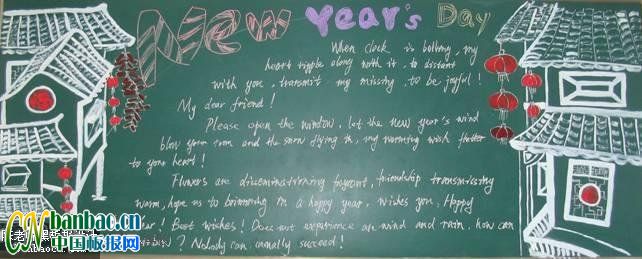 New Year's Day
When clock is bellring, my
heart ripple along with it, to distant
with you, transmit my missing, to be joyful!
My dear friend!
Please open the window, let the new year's wind
blow your room and the snow flying in, my warming wish flutter
to your heart!
Flowers are disseminationing fragrant, friendship transmissing
warm, hope us to brimming in a happy year, wishes you, Happy
ear! Best wishes! Does not experience wind and rain, how can
? Nobody can usually succeed!
CN banbao.cn
中国板报网